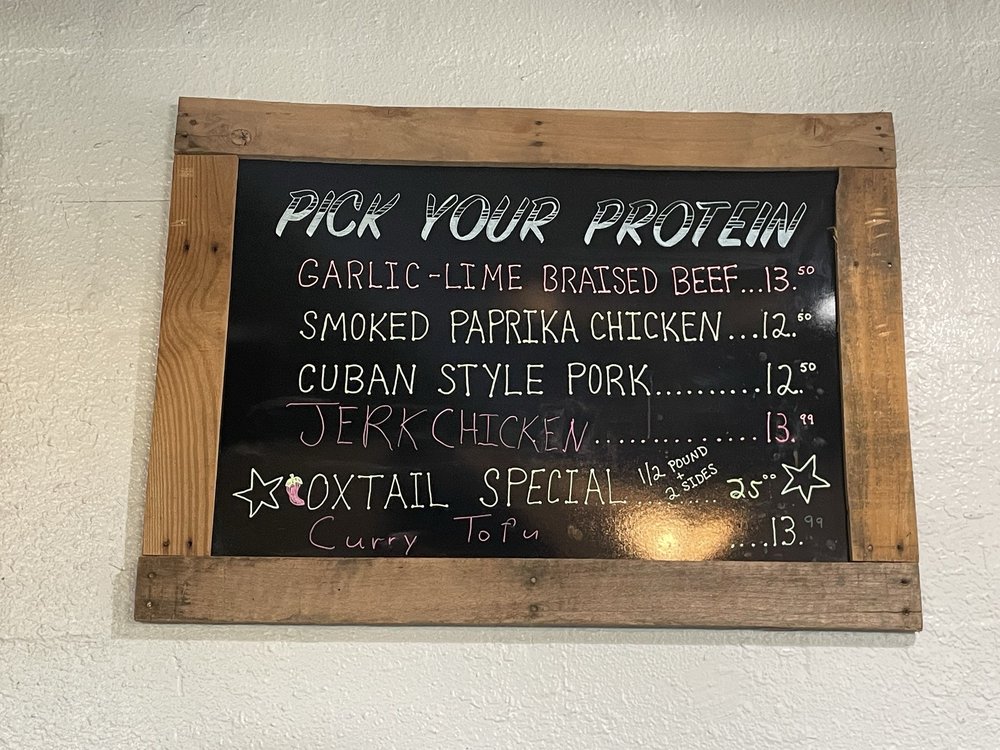 PICK YOUR PROTEIN
GARLIC-LIME BRAISED BEEF...13.50
SMOKED PAPRIKA CHICKEN...12.50
CUBAN STYLE PORK..........12.50
JERK CHICKEN...............13.99
OXTAIL SPECIAL 1/2 POUND + 2 SIDES ........ 25.00
Curry Tofu ....13.99